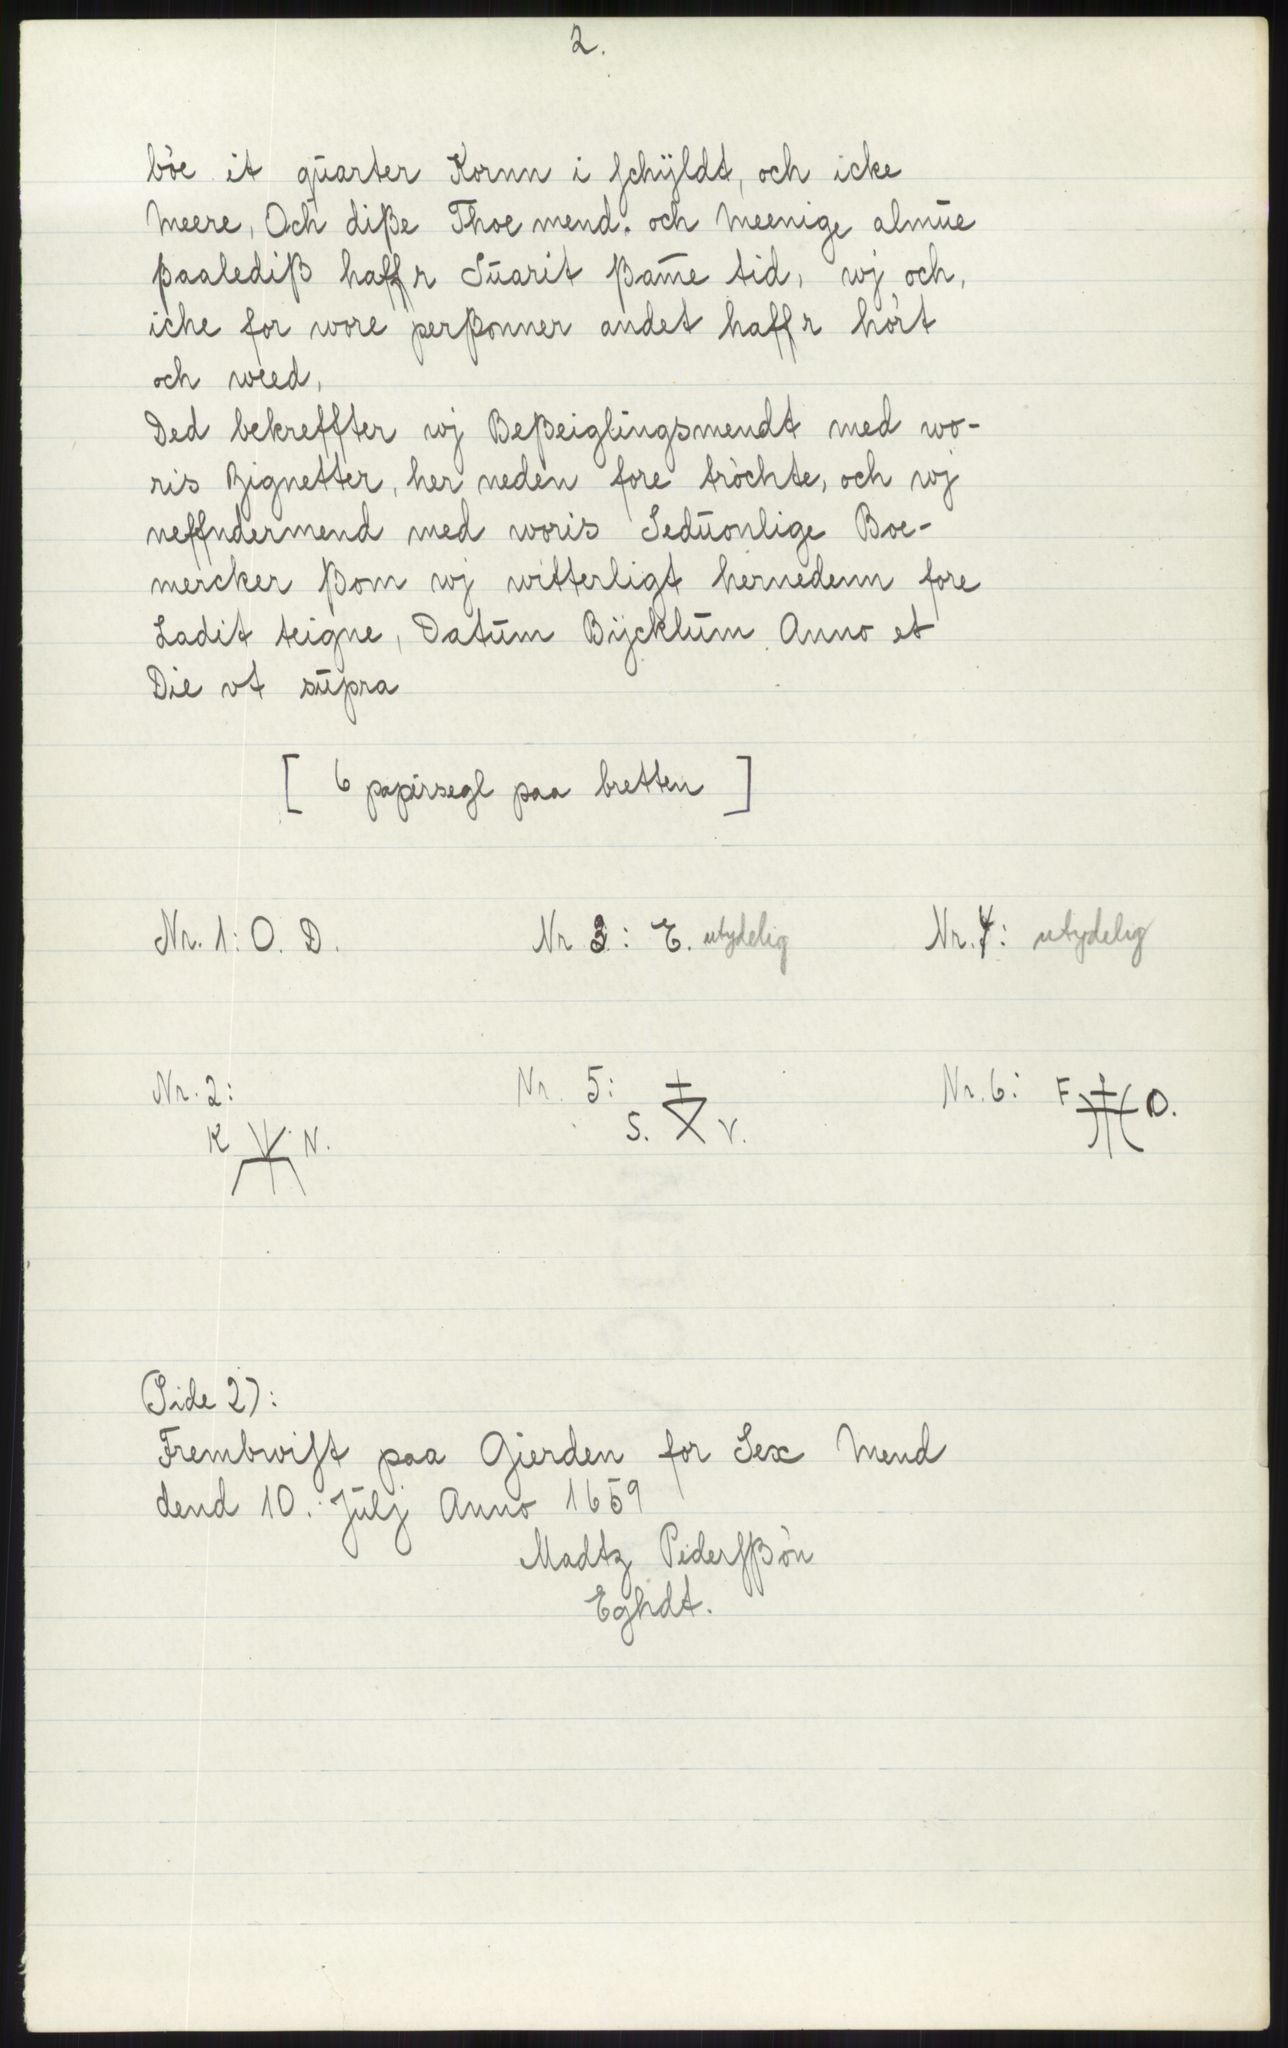 2.
böe it quarter Kornn i schÿldt, och icke
Meere, Och diße Thoe mend. och Meenige almūe
ßaalediß haffr Sūarit ßame tid, wj och,
iche for wore perßonner andet haffr hört
och weed,
Ded bekreffter wj Beßeiglingsmendt med wo-
ris Zignetter, her neden fore tröchte, och wj
neffndermend med woris Sedūonlige Boe-
mercker ßom wj witterligt hernedenn fore
Ladit teigne, Datūm Bÿcklūm Anno et
Die vt sūpra
[ 6 papirsegl paa bretten ]
Nr. 1: O. D. Nr 3: E. utydelig Nr. 4: utydelig
Nr. 2: Nr. 5: Nr. 6: F O.
K N. S. V.
(Side 2):
Frembwist paa Gierden for Sex Mend
dend 10. Jūlj Anno 1659
Madtz Pedersßön
Eghdt.